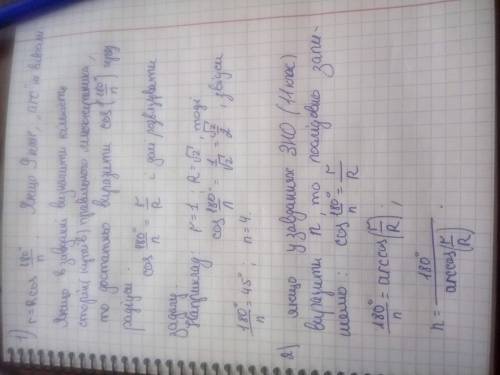 1) r = R cos 180°/n Якщо 9 клас, "arc" не вивчали
Якщо в завданні визначити кількість
сторін (кутів) правильного многокутника,
то достатньо виразити cos(180°/n) через
радіуси:
cos 180°/n = r/R і далі розв'язувати
задачу.
Наприклад: r = 1 R = √2, тоді
cos 180°/n = 1/√2 = √2/2, звідси
180°/n = 45°; n = 4.
2) якщо у завданнях ЗНО (11 клас)
виразити n, то послідовно запи-
шемо: cos 180°/n = r/R
180°/n = arccos(r/R);
n = 180°/arccos(r/R)